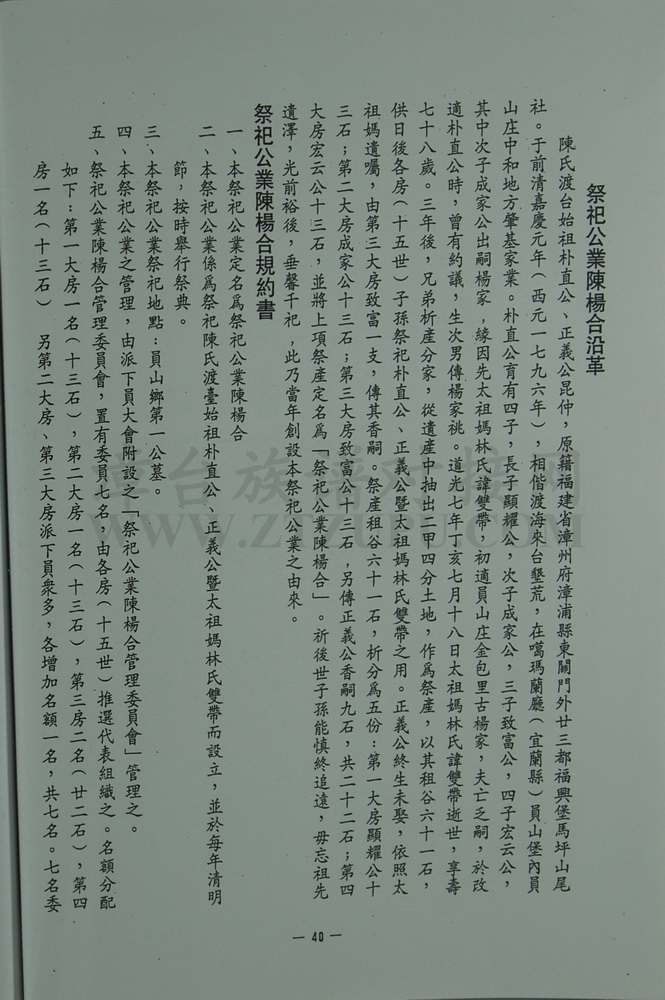 祭祀公業陳楊合沿革
陳氏渡台始祖朴直公、正義公昆仲，原籍福建省漳州府漳浦縣東關門外廿三都福興堡馬坪山尾
社。于前清嘉慶元年（西元一七九六年），相偕渡海來台墾荒，在噶瑪蘭廳（宜蘭縣）員山堡內員
山庄中和地方肇基家業。朴直公育有四子，長子顯耀公，次子成家公，三子致富公，四子宏云公，
其中次子成家公出嗣楊家，緣因先太祖媽林氏諱雙帶，初適員山庄金包里古楊家，夫亡乏嗣，於改
適朴直公時，曾有約議，生次男傳楊家祧。道光七年丁亥七月十八日太祖媽林氏諱雙帶逝世，享壽
七十八歲。三年後，兄弟析產分家，從遺產中抽出二甲四分土地，作爲祭產，以其租谷六十一石，
供日後各房（十五世）子孫祭祀朴直公、正義公暨太祖媽林氏雙帶之用。正義公終生未娶，依照太
祖媽遺囑，由第三大房致富一支，傳其香嗣。祭產租谷六十一石，析分爲五份：第一大房顯耀公十
三石；第二大房成家公十三石；第三大房致富公十三石，另傳正義公香嗣九石，共二十二石；第四
大房宏云公十三石，並將上項祭產定名爲「祭祀公業陳楊合」。祈後世子孫能慎終追遠，毋忘祖先
遺澤，光前裕後，垂馨千祀，此乃當年創設本祭祀公業之由來。
祭祀公業陳楊合規約書
一、本祭祀公業定名爲祭祀公業陳楊合
二、本祭祀公業係爲祭祀陳氏渡臺始祖朴直公、正義公暨太祖媽林氏雙帶而設立，並於每年清明
節，按時舉行祭典。
三、本祭祀公業祭祀地點：員山鄉第一公墓。
四、本祭祀公業之管理，由派下員大會附設之「祭祀公業陳楊合管理委員會」管理之。
五、祭祀公業陳楊合管理委員會，置有委員七名，由各房（十五世）推選代表組織之。名額分配
如下：第一大房一名（十三石），第二大房一名（十三石），第三房二名（廿二石），第四
房一名（十三石） 另第二大房、第三大房派下員衆多，各增加名額一名，共七名。七名委
— 40 —